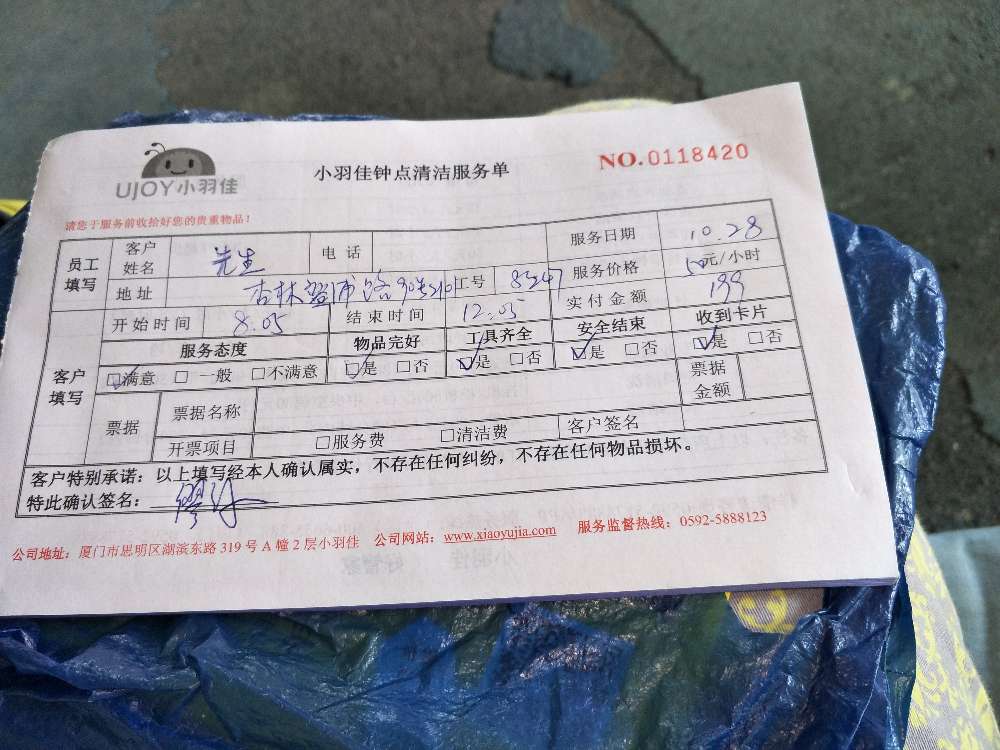 UJOY小羽佳
小羽佳钟点清洁服务单
NO.0118420
请您于服务前收拾好您的贵重物品！
员工填写 客户姓名 先生 电话 服务日期 10.28
地址 杏林 路 工号 8347 服务价格 50元/小时
开始时间 8.05 结束时间 12.05 实付金额 199
客户填写 服务态度 物品完好 工具齐全 安全结束 收到卡片
☑满意 □一般 □不满意 ☑是 □否 ☑是 □否 ☑是 □否 ☑是 □否
票据 票据名称 票据金额
开票项目 □服务费 □清洁费 客户签名
客户特别承诺：以上填写经本人确认属实，不存在任何纠纷，不存在任何物品损坏。
特此确认签名：
公司地址：厦门市思明区湖滨东路 319 号 A 幢 2 层小羽佳 公司网站：www.xiaoyujia.com 服务监督热线：0592-5888123